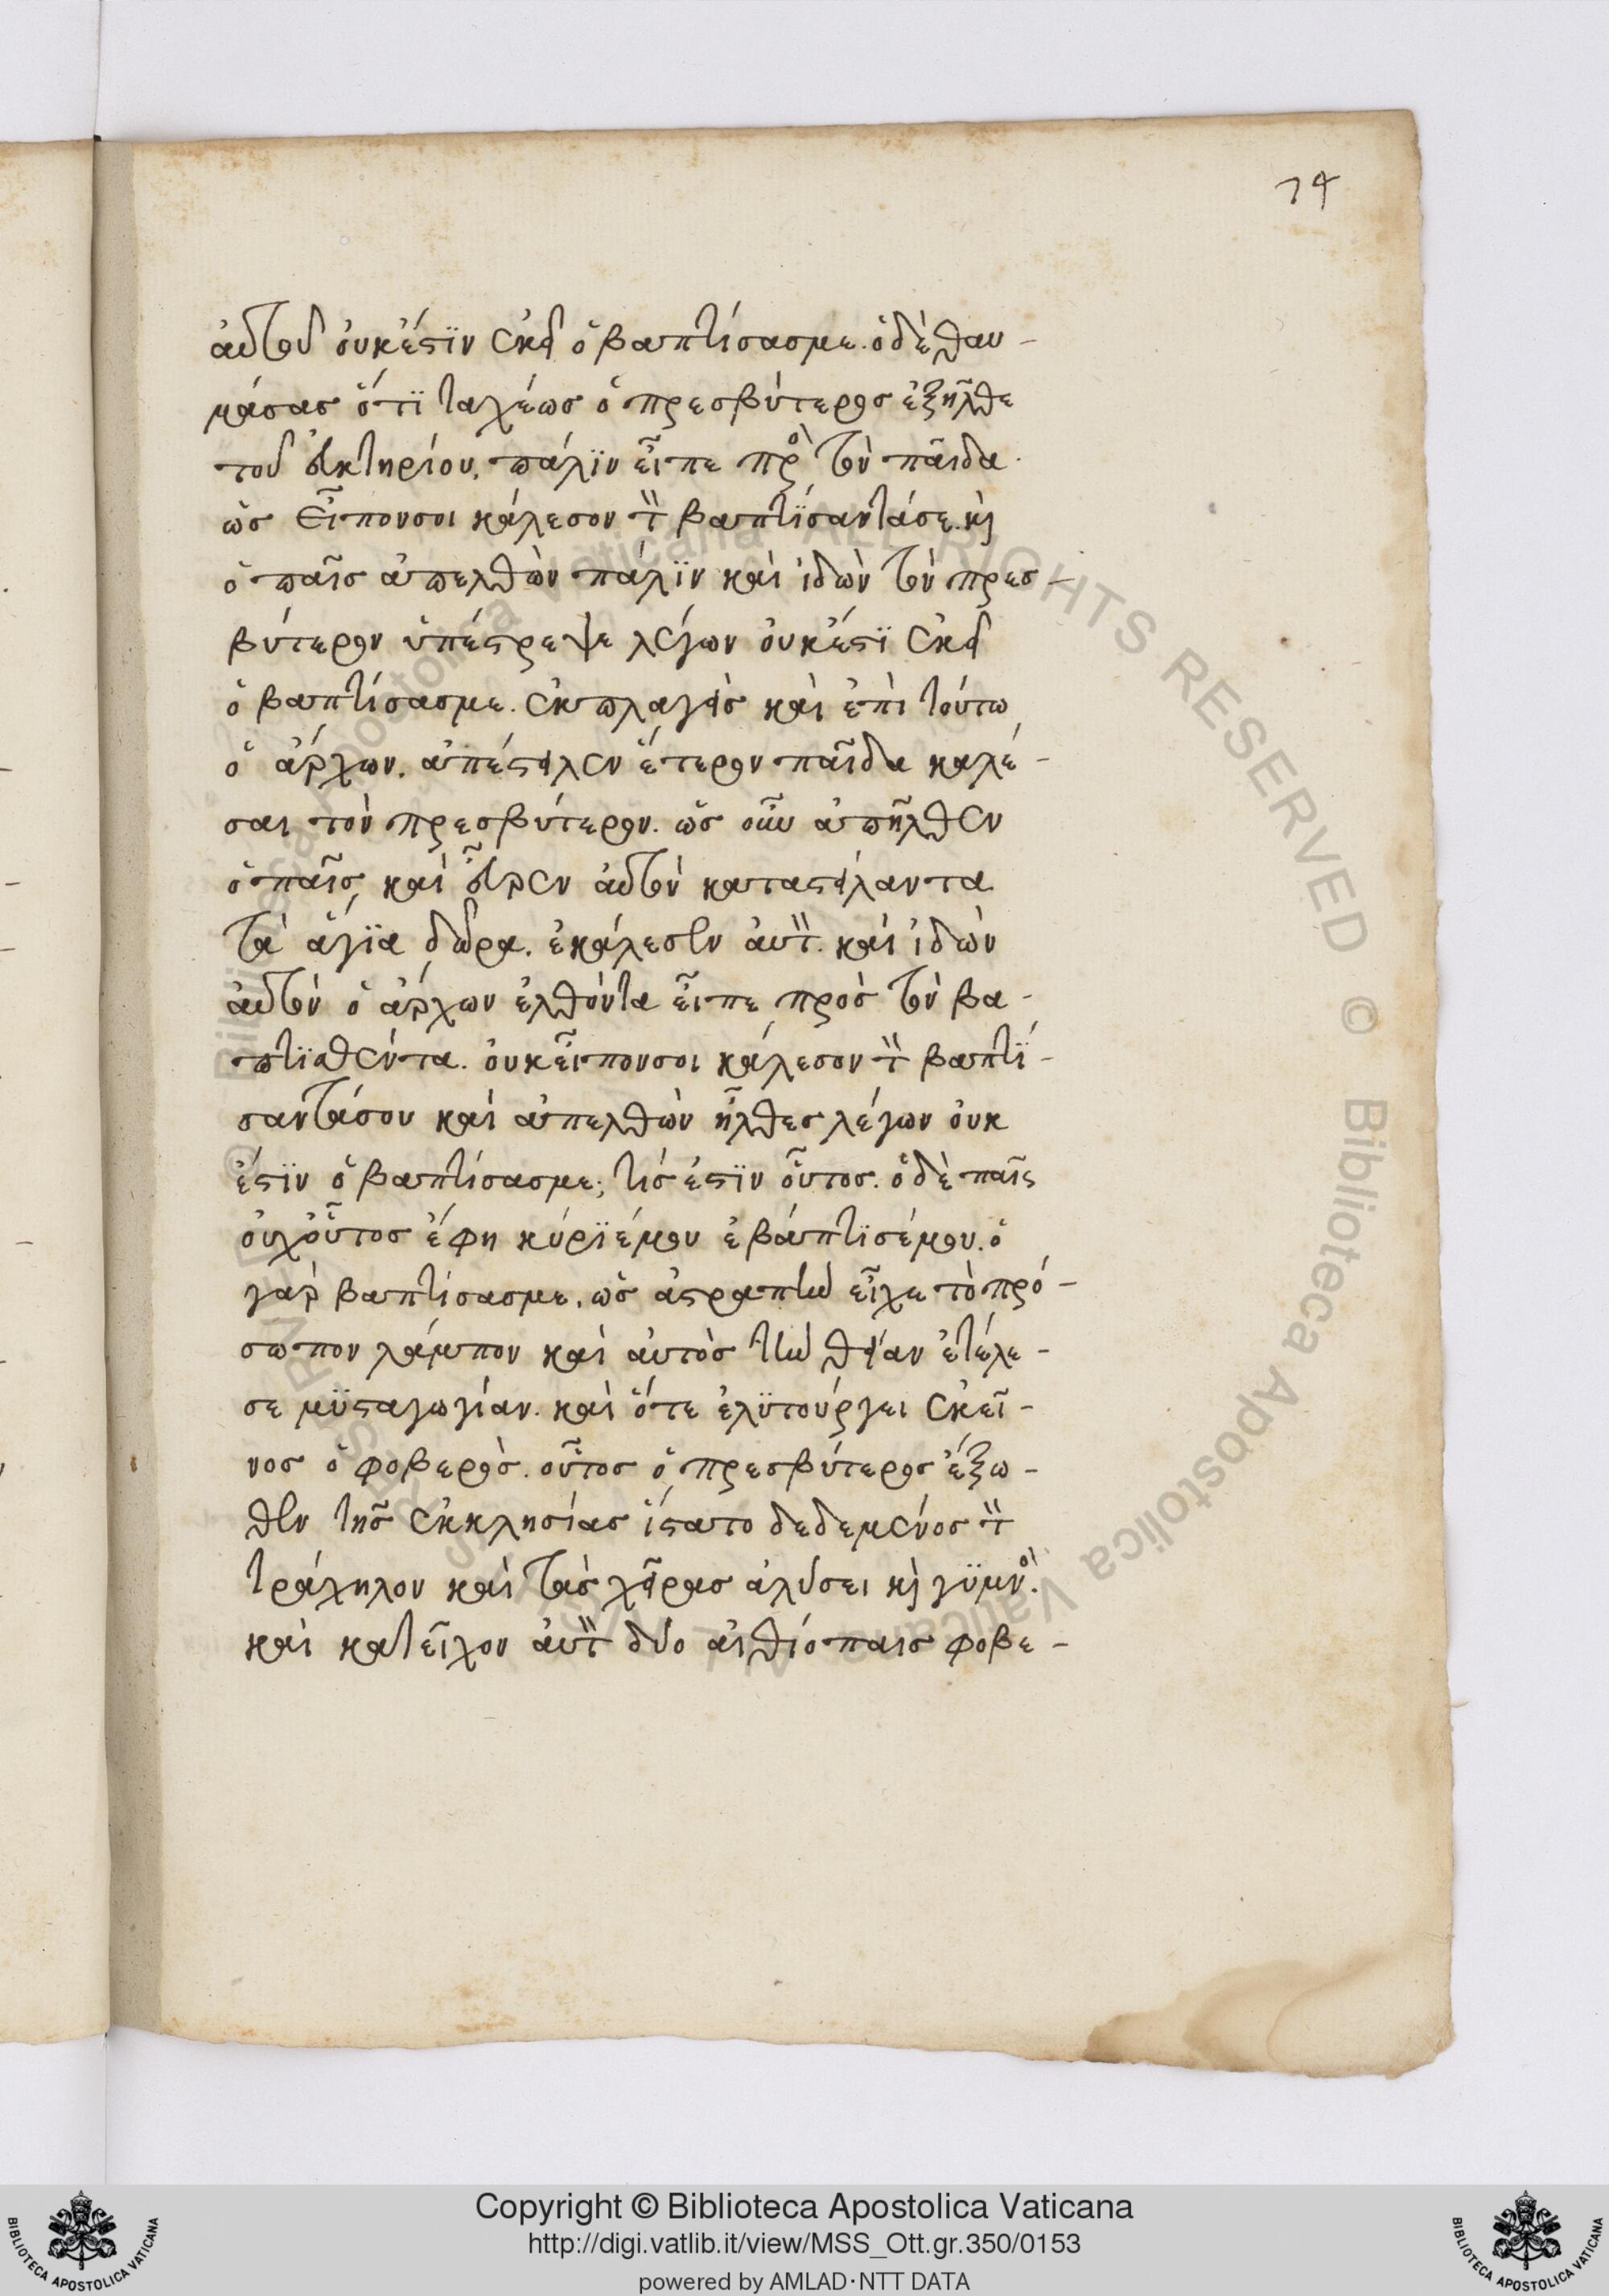 74
αὐτοῦ οὐκέστϊν ἐκεῖ ὁ βαπτίσασμε. ὁ δὲ θαυ-
μάσας ὅτϊ ταχέως ὁ πρεσβύτερος ἐξῆλθε
τοῦ εὐκτηρίου, πάλϊν εἶπε πρὸ τὸν παῖδα.
ὡς εἶπονσοι κάλεσον τ̏ βαπτΐσαντάσε. κ̀
ὁ παῖς ἀπελθὼν πάλϊν καὶ ἰδὼν τὸν πρεσ-
βύτερον ὑπέστρεψε λέγων οὐκέστϊ ἐκεῖ
ὁ βαπτίσασμε. ἐκπλαγεὶς καὶ ἐπὶ τούτω
ὁ ἄρχων. ἀπέστειλεν ἕτερον παῖδα καλέ-
σαι τὸν πρεσβύτερον. ὡς οὖν ἀπῆλθεν
ὁ παῖς, καὶ εὗρεν αὐτὸν καταστείλαντα
τὰ ἅγϊα δῶρα. ἐκάλεσεν αὐτ̏. καὶ ἰδὼν
αὐτὸν ὁ ἄρχων ἐλθόντα εἶπε πρὸς τὸν βα-
πτϊσθέντα. οὐκεἶπονσοι κάλεσον τ̏ βαπτΐ-
σαντάσου καὶ ἀπελθὼν ἦλθες λέγων οὐκ
ἔστϊν ὁ βαπτίσασμε; τίς ἐστϊν οὗτος. ὁ δὲ παῖς
οὐχοὗτος ἔφη κύρϊέμου ἐβάπτϊσέμου. ὁ
γὰρ βαπτίσασμε, ὡς ἀστραπὴν εἶχε τὸ πρό-
σωπον λάμπον καὶ αὐτὸς τὴν θείαν ἐτέλε-
σε μϋσταγωγίαν. καὶ ὅτε ἐλϋτούργει ἐκεῖ-
νος ὁ φοβερὸς. οὗτος ὁ πρεσβύτερος ἔξω-
θεν τῆς ἐκκλησίας ἵστατο δεδεμένος τ̏
τράχηλον καὶ τὰς χεῖρας ἀλύσει κ̀ γϋμνὸ.
καὶ κατεῖχον αὐτ̏ δύο αἰθίοπαις φοβε-
Copyright © Biblioteca Apostolica Vaticana
http://digi.vatlib.it/view/MSS_Ott.gr.350/0153
powered by AMLAD·NTT DATA
BIBLIOTECA APOSTOLICA VATICANA
BIBLIOTECA APOSTOLICA VATICANA